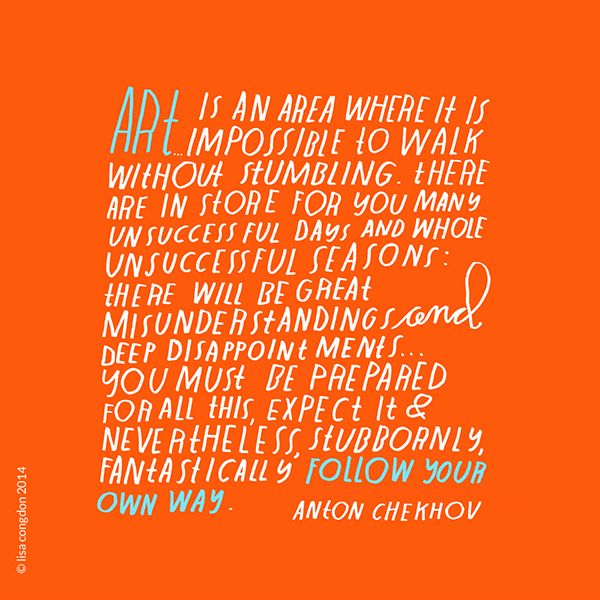 ARt IS AN AREA WHERE It IS
...IMPOSSIBLE to WALK
WIthOUt StUMBLING. tHERE
ARE IN StORE FOR YOU MANY
UNSUCCESSFUL DAYS AND WHOLE
UNSUCCESSFUL SEASONS:
tHERE WILL BE GREAt
MISUNDERStANDINGS and
DEEP DISAPPOINtMENtS...
YOU MUSt BE PREPARED
FOR ALL tHIS, EXPECt It &
NEVERtHELESS, StUBBORNLY,
FANtAStICALLY FOLLOW YOUR
OWN WAY.
ANtON CHEKHOV
© lisa congdon 2014